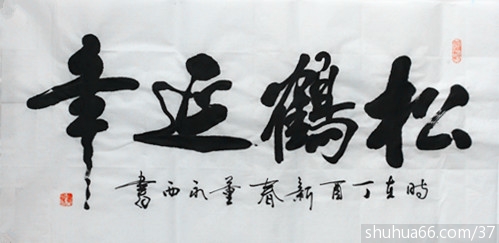 松鹤延年
时在丁酉新春董永西书
shuhua66.com/37